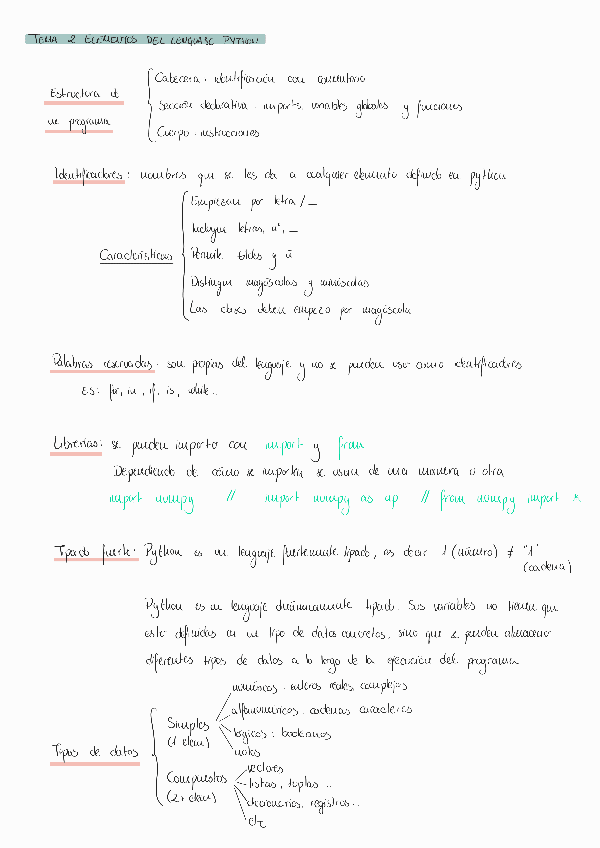 TEMA 2 ELEMENTOS DEL LENGUAJE PYTHON
Estructura de
un programa
Cabecera: identificación con comentario
Sección declarativa: imports, variables globales y funciones
Cuerpo: instrucciones
Identificadores: nombres que se les da a cualquier elemento definido en python
Características
Empiezan por letra / _
Incluyen letras, nº, _
Permite tildes y ñ
Distingue mayúsculas y minúsculas
Las clases deben empezar por mayúscula
Palabras reservadas: son propias del lenguaje y no se pueden usar como identificadores
ES: for, in, if, is, while...
Librerías: se pueden importar con import y from
Dependiendo de cómo se importen se usan de una manera u otra
import numpy // import numpy as np // from numpy import *
Tipado fuerte: Python es un lenguaje fuertemente tipado, es decir 1 (número) ≠ "1"
(cadena)
Python es un lenguaje dinámicamente tipado. Sus variables no tienen que
estar definidas en un tipo de datos concretos, sino que se pueden almacenar
diferentes tipos de datos a lo largo de la ejecución del programa
Tipos de datos
Simples
(1 elem)
numéricos: enteros reales, complejos
alfanuméricos: cadenas caracteres
lógicos: booleanos
nulos
Compuestos
(2+ elem)
vectores
listas, tuplas...
diccionarios, registros...
etc